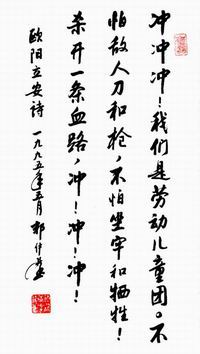 冲冲冲！我们是劳动儿童团。不
怕敌人刀和枪，不怕坐牢和牺牲！
杀开一条血路，冲！冲！冲！
欧阳立安诗 一九九五年五月 郭仲